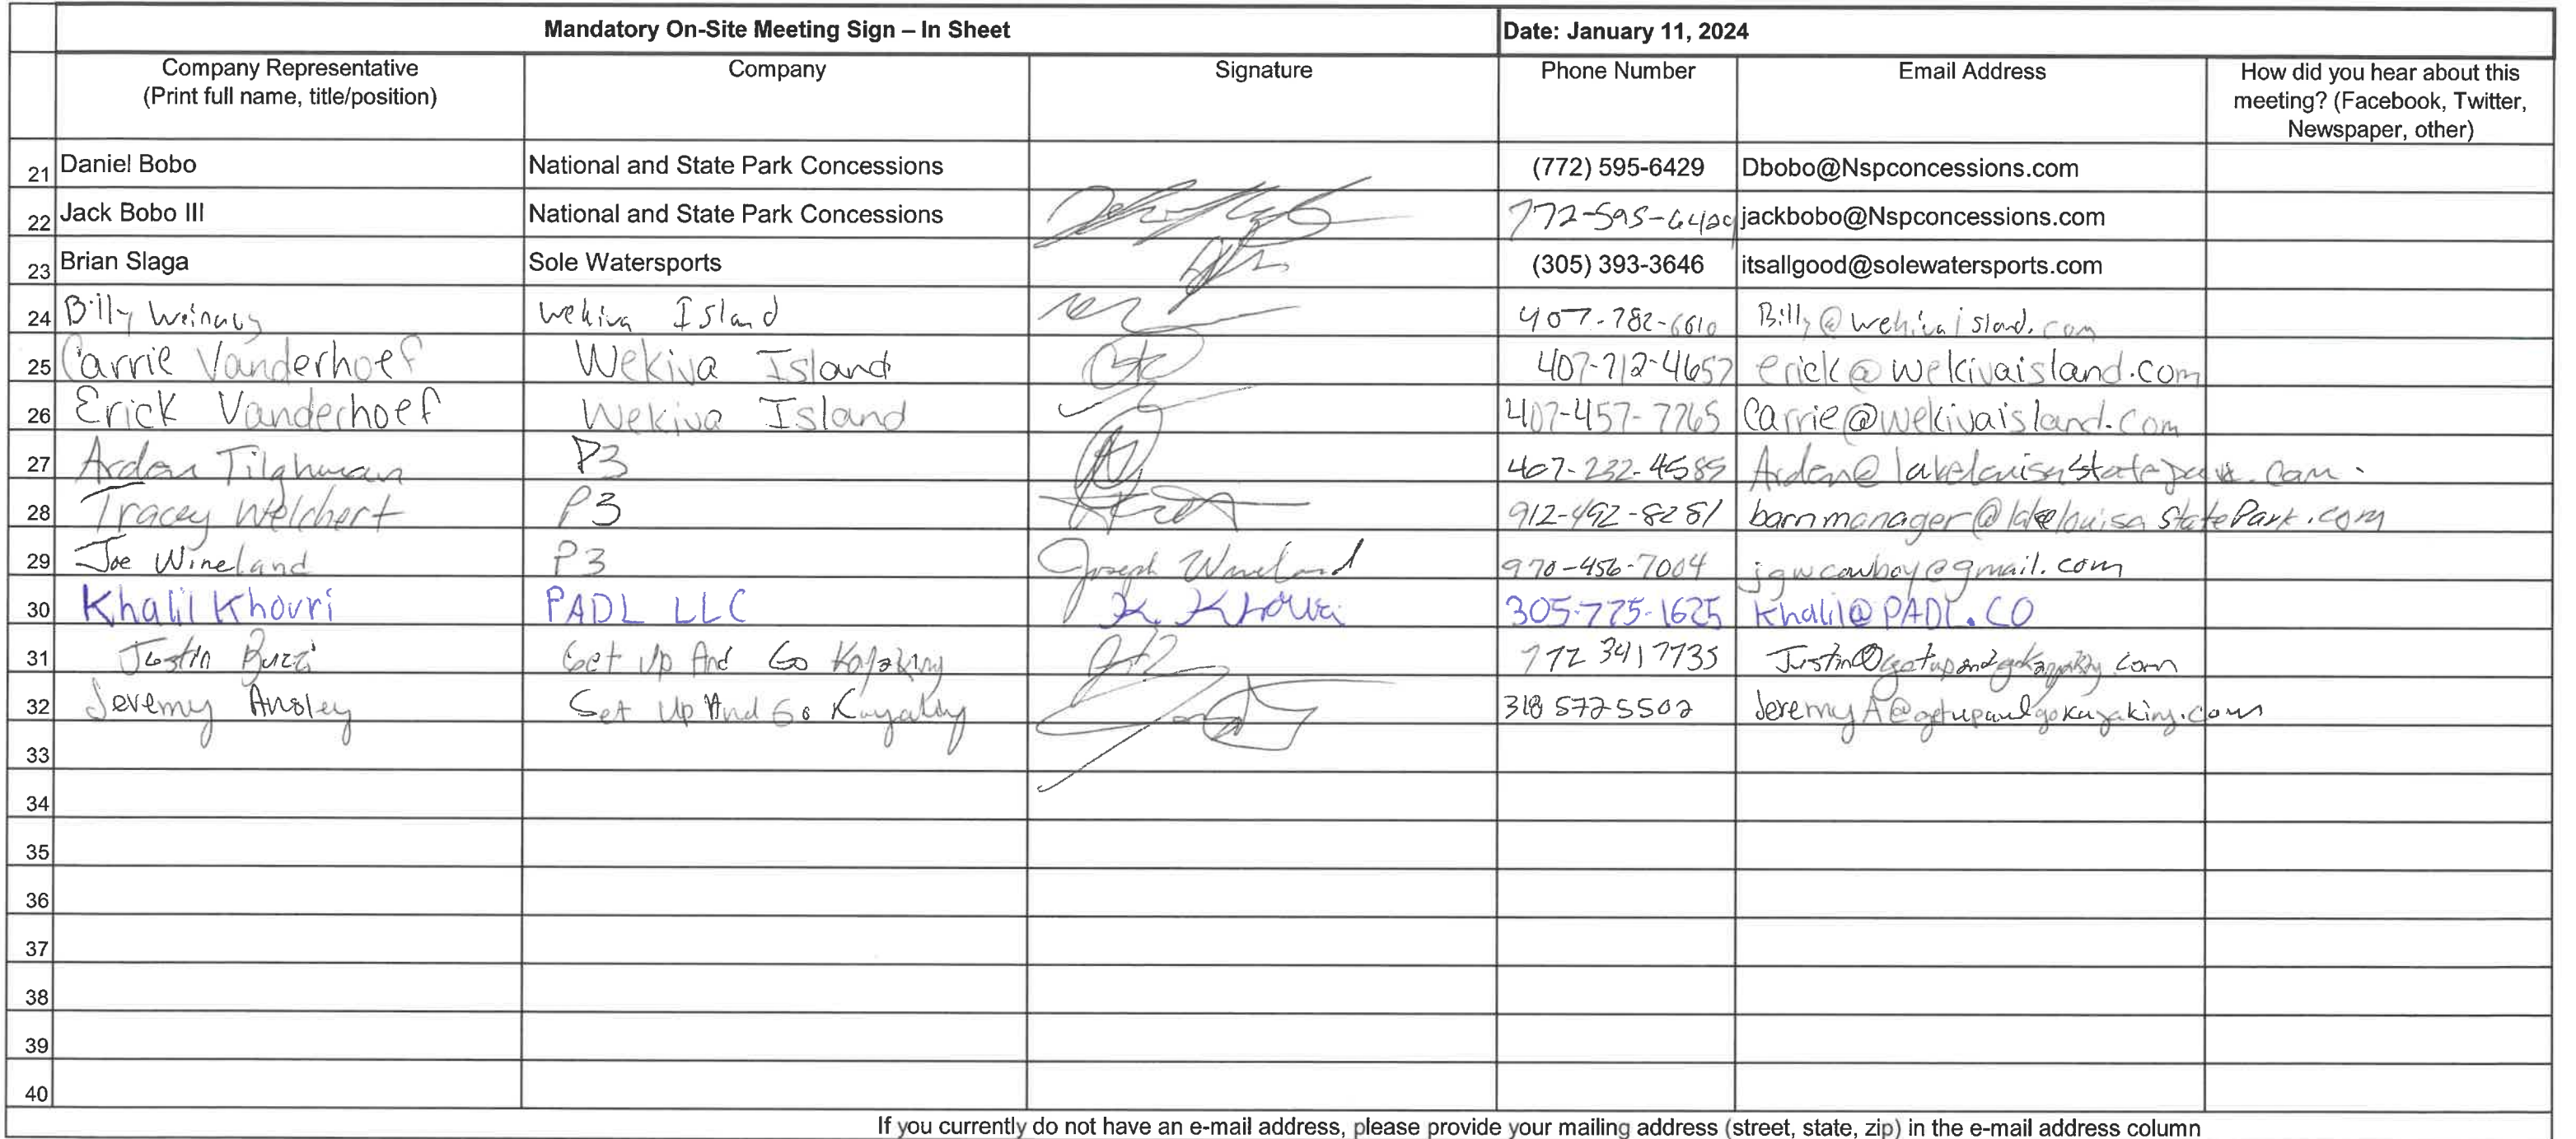 Mandatory On-Site Meeting Sign – In Sheet Date: January 11, 2024
Company Representative Company Signature Phone Number Email Address How did you hear about this
(Print full name, title/position) meeting? (Facebook, Twitter,
Newspaper, other)
21 Daniel Bobo National and State Park Concessions (772) 595-6429 Dbobo@Nspconcessions.com
22 Jack Bobo III National and State Park Concessions jackbobo@Nspconcessions.com
23 Brian Slaga Sole Watersports (305) 393-3646 itsallgood@solewatersports.com
24 Billy Wekiva Island 407-782-6610 Billy@wekivaisland.com
25 Carrie Vanderhoef Wekiva Island 407-712-4657 erick@wekivaisland.com
26 Erick Vanderhoef Wekiva Island 407-457-7765 Carrie@wekivaisland.com
27 Arden Tilghman P3 407-232-4585 Arden@lakelouisaStatepark.com
28 Tracey Welchert P3 912-492-8281 barnmanager@lakelouisaStatePark.com
29 Joe Wineland P3 Joseph Wineland 970-456-7004 jgwcowboy@gmail.com
30 Khalil Khouri PADL LLC K. Khouri 305-775-1625 Khalil@PADL.CO
31 Justin Buzzi Get Up And Go Kayaking 772 341 7735 Justin@getupandgokayaking.com
32 Jeremy Ansley Get Up And Go Kayaking 318 572 5502 JeremyA@getupandgokayaking.com
33
34
35
36
37
38
39
40
If you currently do not have an e-mail address, please provide your mailing address (street, state, zip) in the e-mail address column